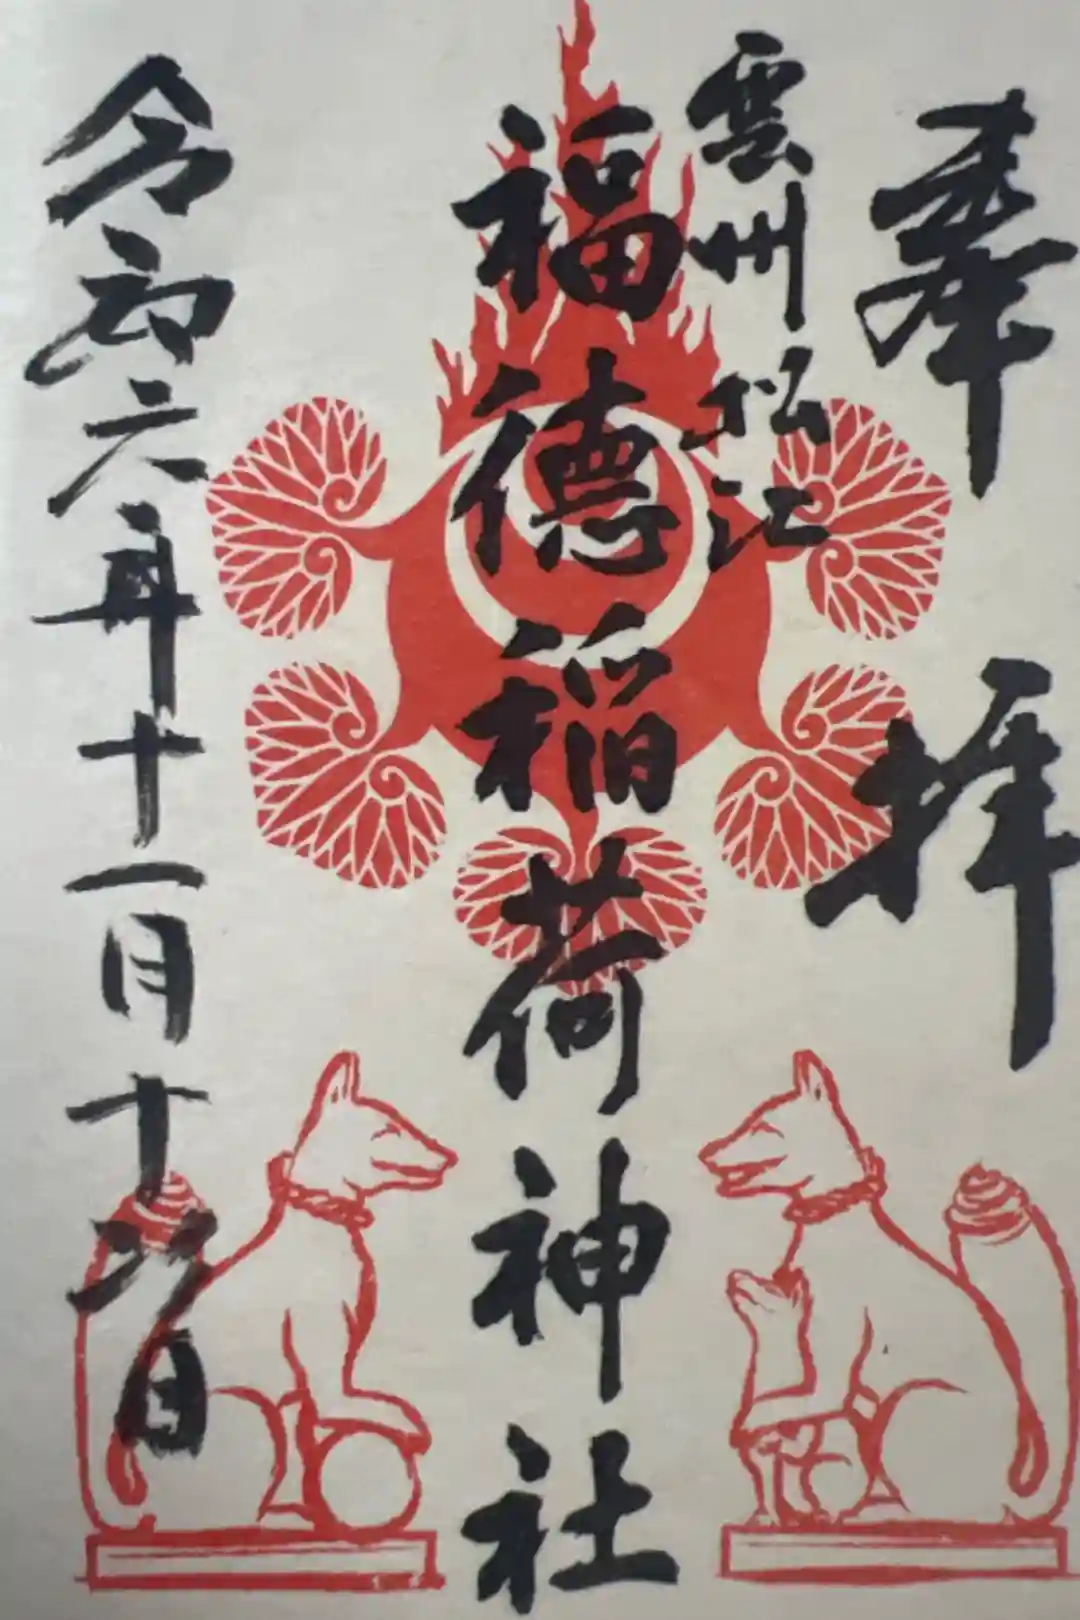 奉拝
雲州松江
福徳稲荷神社
令和六年十一月十六日